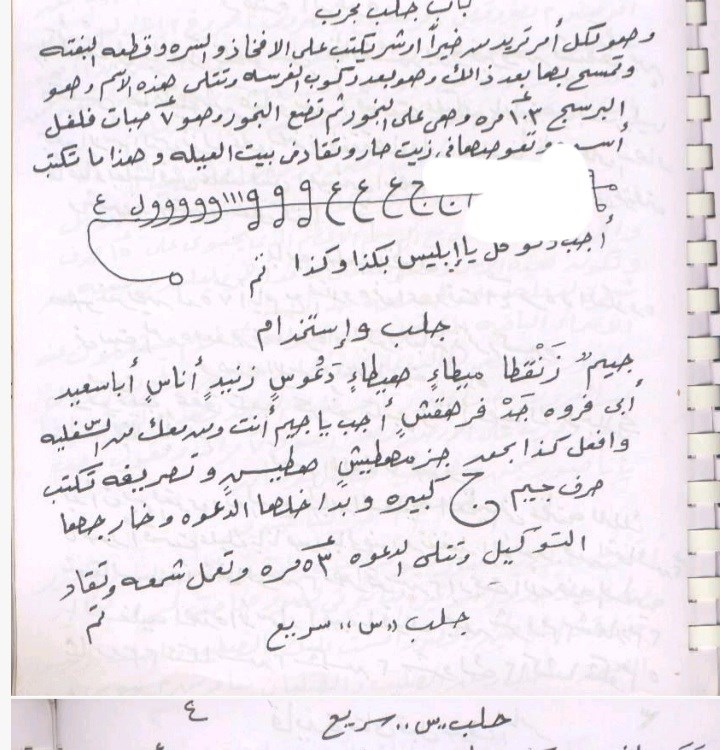 باب جلب مجرب
وهو لكل أمر تريد من خيراً أو شر يكتب على الافخاذ والسره وقطعه البفته
وتمسح بها بعد ذالك وهو بعد ركوب الفرسه وتتلى هذه الاسم وهو
البرسيج ١٠٣ مره وهى على البخور ثم تضع البخور وهو ٧ حبات فلفل
أسود فى زيت حار وتقاد من بيت الفيله وهذا ما تكتب
ج ج ع ع ع ۹ ۹ ۹ ااا ووووو ول ع
أجب وتوكل يا إبليس بكذا وكذا تم
جلب وإستخدام
جيم زَنْقَطا ميطاءٍ هيطاءٍ دعُوسٍ زبيدٍ أناسٍ أبا سعيد
أبى فروه أجب يا جيم أنت ومن معك من السفليه
وافعل كذا بحق هطيشٍ هطيسٍ وتصريفه تكتب
حرف جيم ج كبيره وبداخلها الدعوه وخارجها
التوكيل وتتلى الدعوه ٥٣ مره وتعمل شمعه وتقاد
جلب ,,س,, سريع تم
جلب ,,س,, سريع ٤